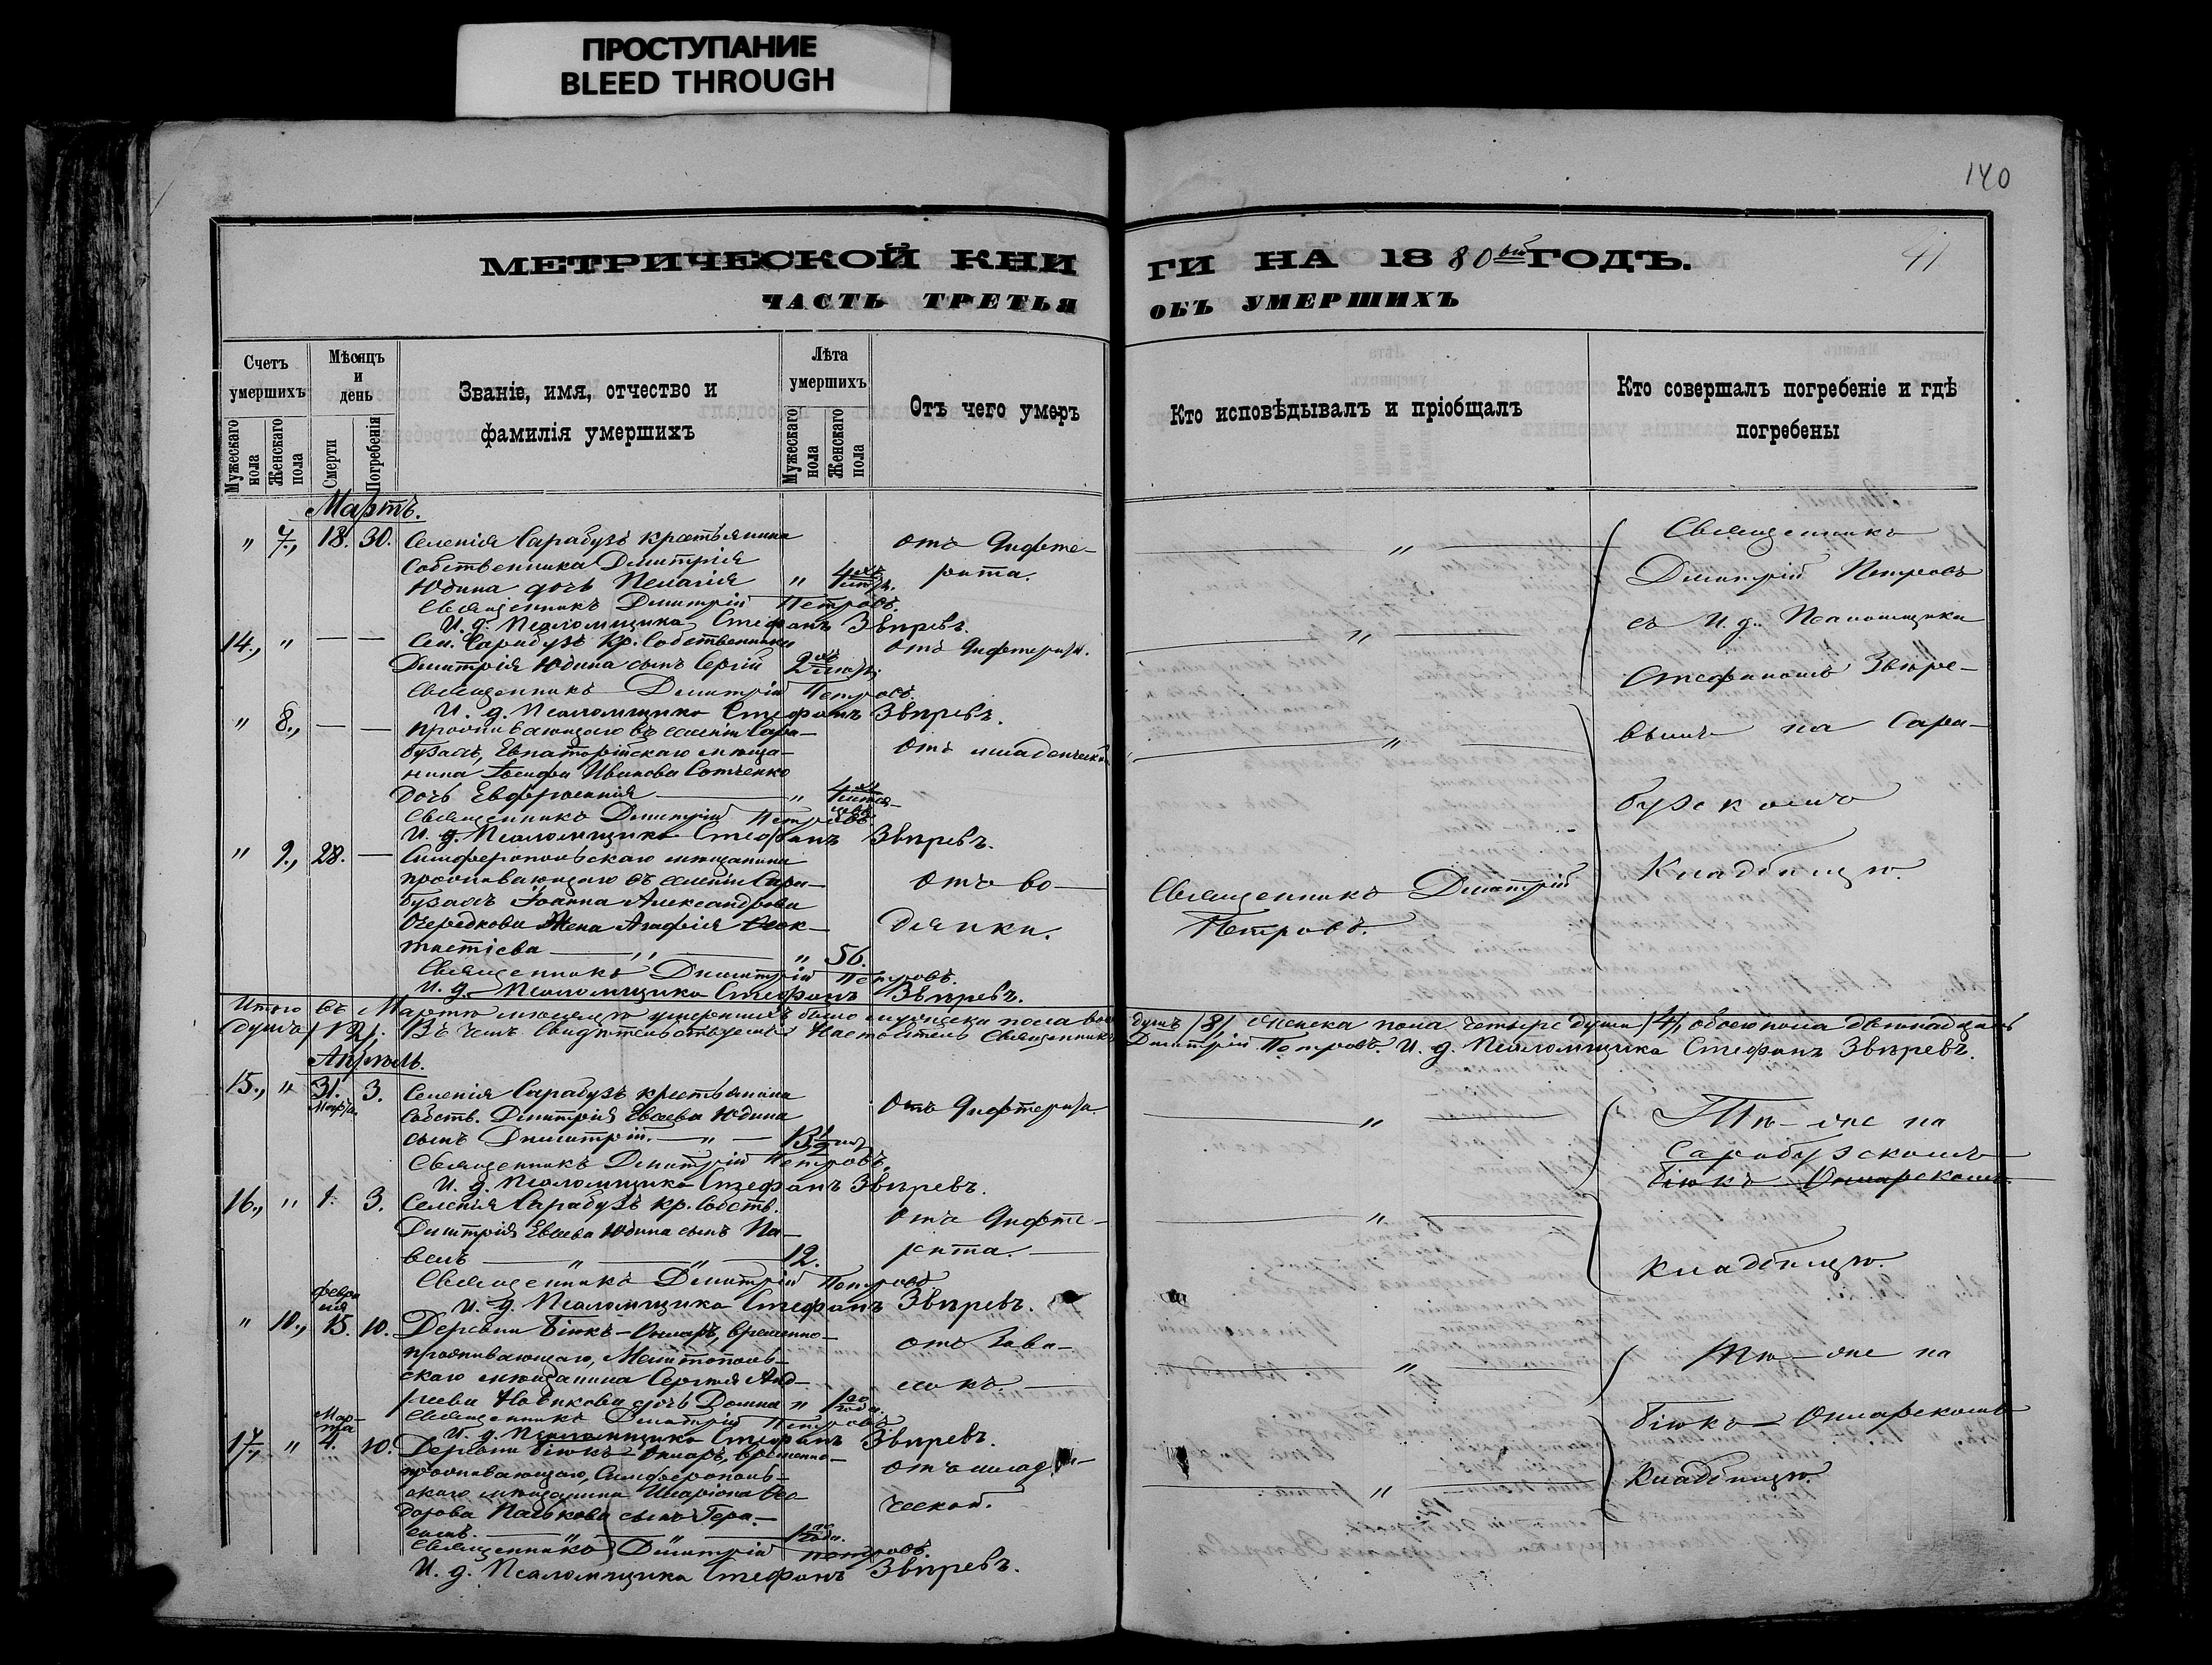 ПРОСТУПАНИЕ
BLEED THROUGH
140
41
МЕТРИЧЕСКОЙ КНИ
ГИ НА 1880ый ГОДЪ.
ЧАСТЬ ТРЕТЬЯ
ОБЪ УМЕРШИХЪ
Счетъ умершихъ
Мужескаго пола
Женскаго пола
Мѣсяцъ и день
Смерти
Погребенія
Званіе, имя, отчество и
фамилія умершихъ
Лѣта умершихъ
Мужескаго пола
Женскаго пола
Отъ чего умеръ
Кто исповѣдывалъ и пріобщалъ
Кто совершалъ погребеніе и гдѣ
погребены
Мартъ.
" 7., 18. 30. Селенія Сарабузъ крестьянина Отъ дифте-
Собственника Димитрія
Юдина дочь Пелагія " 4 рита.
Священникъ Димитрій Петровъ.
И. д. Псаломщика Стефанъ Звѣревъ.
14., " — — Сел. Сарабузъ Кр. Собственника Отъ дифтерита.
Димитрія Юдина сынъ Сергій 2
Священникъ Димитрій Петровъ.
И. д. Псаломщика Стефанъ Звѣревъ.
" 8., — — Проживающаго въ селеніи Сара-
бузахъ, Евпаторійскаго мѣща- Отъ младенческой
нина Іосифа Иванова Сотченко
Дочь Евфросинія — " 4
Священникъ Димитрій Петровъ
И. д. Псаломщика Стефанъ Звѣревъ.
" 9., 28. — Симферопольскаго мѣщанина
проживающаго въ селеніи Сара- Отъ во-
бузахъ Іоанна Александрова
Очередкова Жена Агафія Феок- дянки.
тистіева — " — " 56.
Священникъ Димитрій Петровъ.
И. д. Псаломщика Стефанъ Звѣревъ.
Священникъ
Димитрій Петровъ
съ И. д. Псаломщика
Стефаномъ Звѣре-
вымъ на Сара-
бузскомъ
Кладбищѣ.
Священникъ Димитрій
Петровъ.
Итого въ Мартѣ мѣсяцѣ умершихъ было мужеска пола восемь душъ /8/, женска пола четыре души /4/, обоего пола двѣнадцать
душъ /12/. Въ чемъ свидѣтельствуемъ Настоятель Священникъ Димитрій Петровъ. И. д. Псаломщика Стефанъ Звѣревъ.
Апрѣль.
15., " 31. Марта. 3. Селенія Сарабузъ крестьянина
Собств. Димитрія Евсеева Юдина Отъ дифтерита.
сынъ Димитрій. — " — 13 1/2
Священникъ Димитрій Петровъ.
И. д. Псаломщика Стефанъ Звѣревъ.
16., " 1. 3. Селенія Сарабузъ кр. собств.
Димитрія Евсеева Юдина сынъ Па- Отъ дифте-
велъ — " — " — 12. рита.
Священникъ Димитрій Петровъ
И. д. Псаломщика Стефанъ Звѣревъ.
Тѣ-же на
Сарабузскомъ
Біюкъ-Онларскомъ
Кладбищѣ.
" 10., Февраля 15. 10. Деревни Біюкъ-Онларъ, временно-
проживающаго, Мелитополь- Отъ Зава-
скаго мѣщанина Сергѣя Анд-
реева Новикова дочь Домна " 1 года. локъ.
Священникъ Димитрій Петровъ
И. д. Псаломщика Стефанъ Звѣревъ.
17., " Марта 4. 10. Деревни Біюкъ-Онларъ, временно-
проживающаго, Симферополь- Отъ младен-
скаго мѣщанина Иларіона Фео
дорова Палькова сынъ Гера- ческой.
симъ. — " — " — 1 года.
Священникъ Димитрій Петровъ.
И. д. Псаломщика Стефанъ Звѣревъ.
Тѣ-же на
Біюкъ-Онларскомъ
Кладбищѣ.